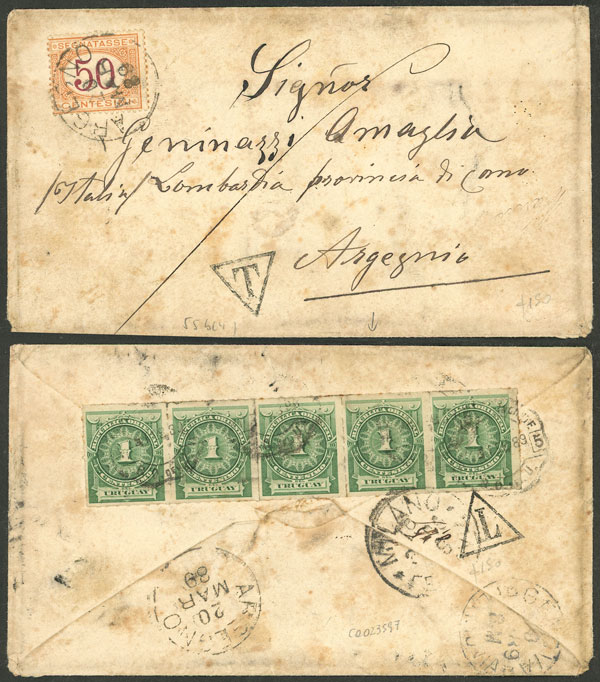 SEGNATASSE
50
CENTESIMI
Signor
Geninazzi Amaglia
/Italia/ Lombardia provincia di Como
Argegnio
T
REPUBLICA ORIENTAL
1
CENTESIMO
URUGUAY
REPUBLICA ORIENTAL
1
CENTESIMO
URUGUAY
REPUBLICA ORIENTAL
1
CENTESIMO
URUGUAY
REPUBLICA ORIENTAL
1
CENTESIMO
URUGUAY
REPUBLICA ORIENTAL
1
CENTESIMO
URUGUAY
MILANO
T
ARGEGNO
20
MAR
89
C0023597